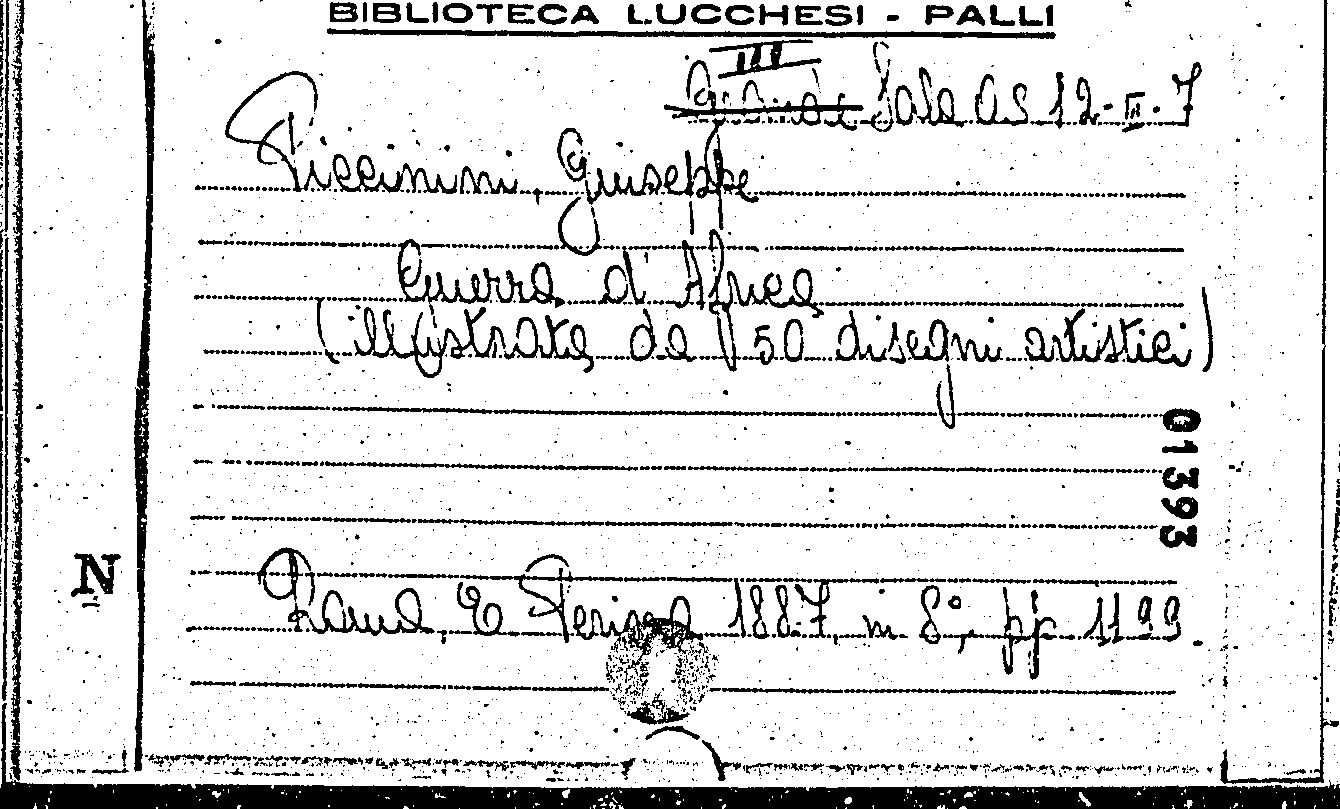 BIBLIOTECA LUCCHESI - PALLI
III
Grande Sala AS 12-II-7
Piccinini, Giuseppe
Guerra d'Africa
(illustrata da 150 disegni artistici)
01393
N
Roma, E Perino 1887, in 8°, pp 1199.